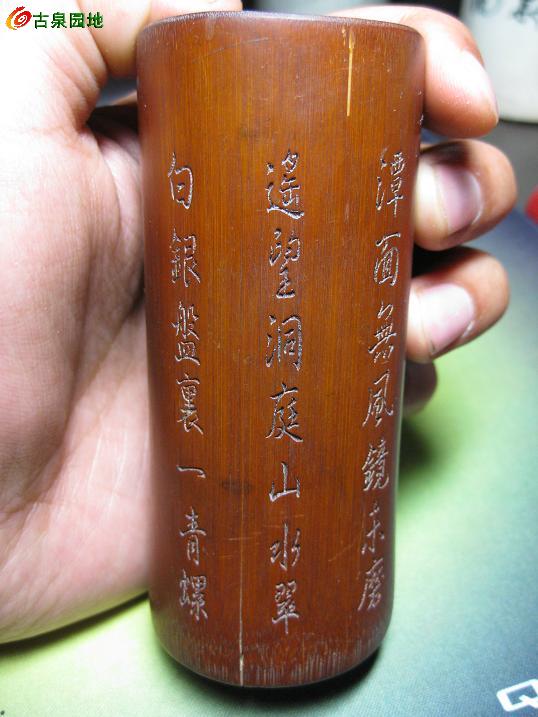 古泉园地
潭面無風鏡未磨
遙望洞庭山水翠
白銀盤裏一青螺
Q